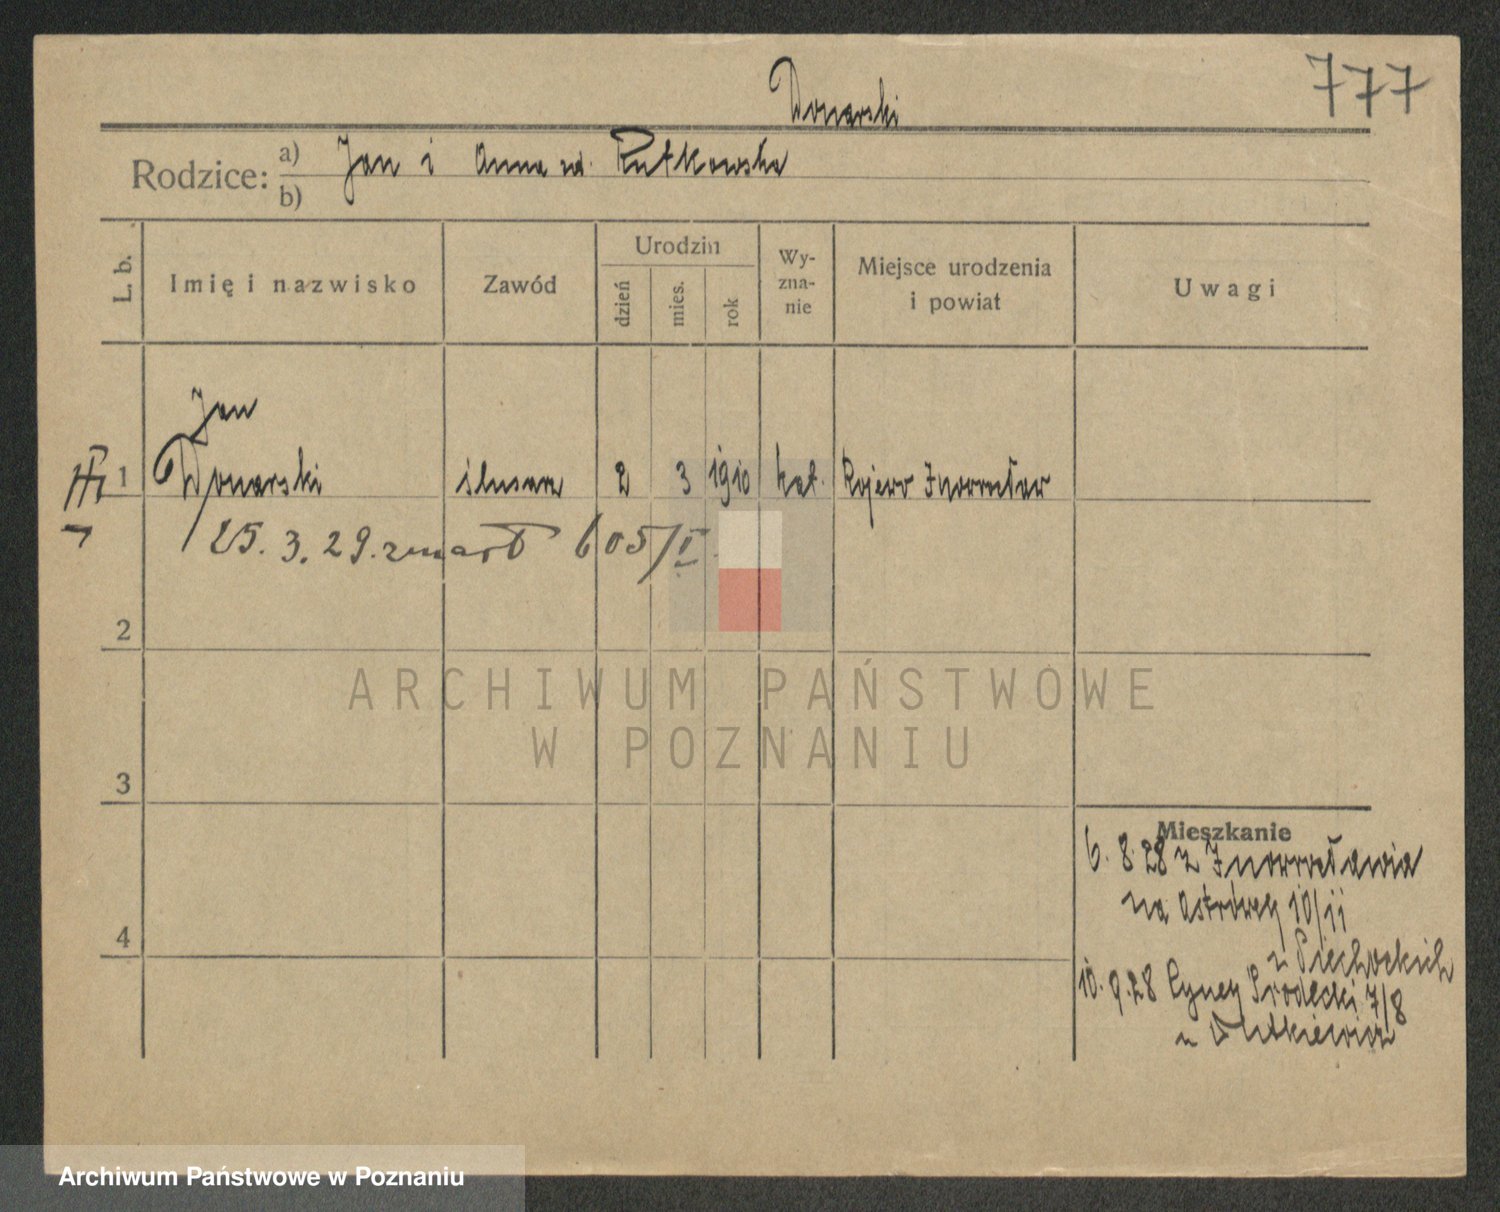 777
Donarski
Rodzice: a) Jan i Anna zd. Rutkowska
b)
L. b.
Imię i nazwisko
Zawód
Urodzin
dzień
mies.
rok
Wy-
zna-
nie
Miejsce urodzenia
i powiat
Uwagi
Jan
1 Donarski ślusarz 2 3 1910 kat. Inowrocław
25. 3. 29. zmarł 605/I
2
3
4
Mieszkanie
6. 8 28 z Inowrocławia
na Ostrówek 10/11
z Piechockich
10. 9.28 Rynek Srodecki 7/8
ARCHIWUM PAŃSTWOWE
W POZNANIU
Archiwum Państwowe w Poznaniu